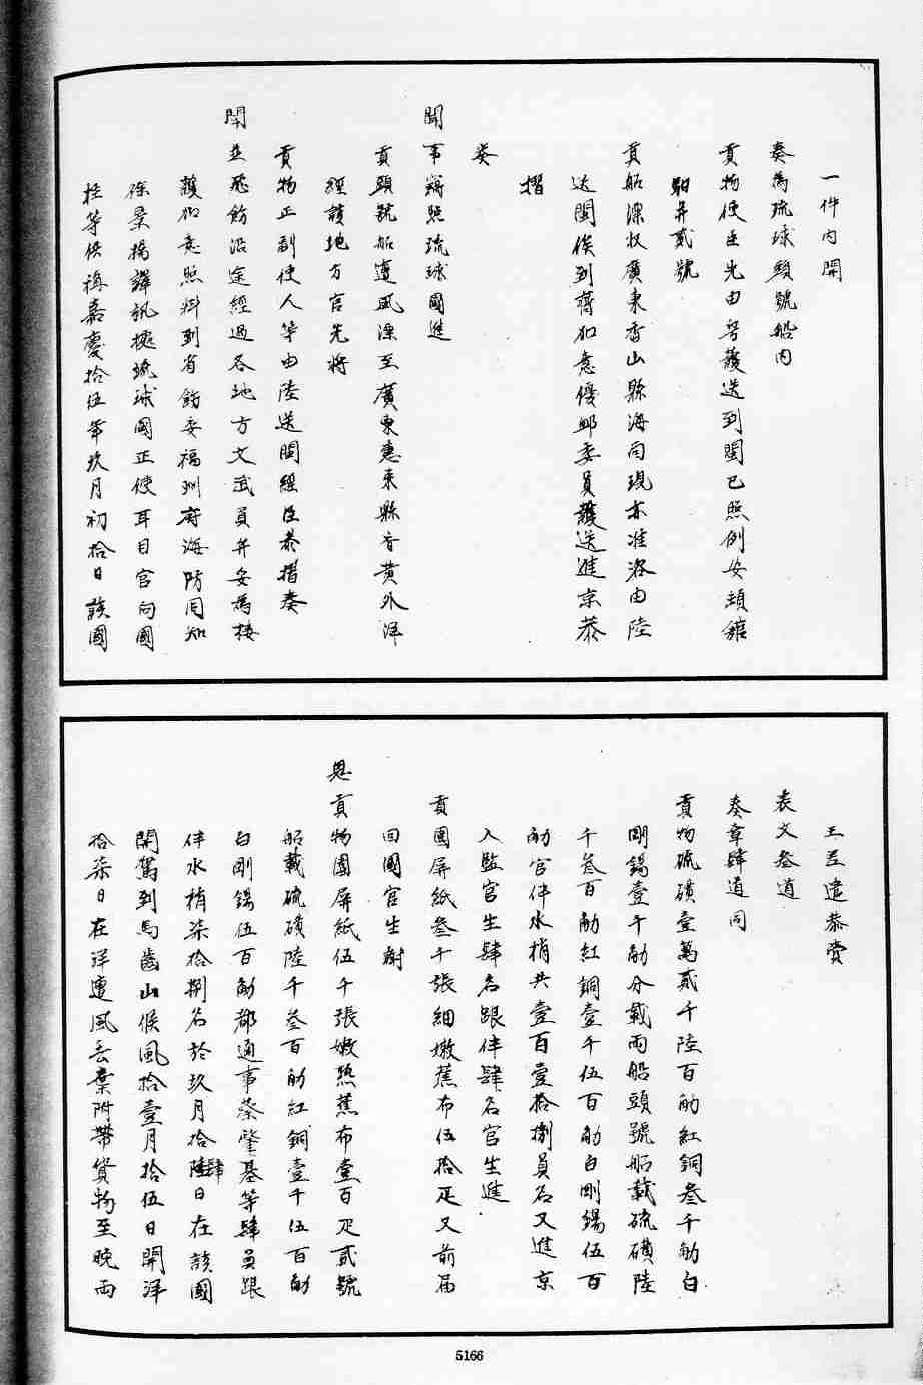 一件內開
奏為琉球頭號船內
貢物使臣先由粵護送到閩已照例安頓館
駔并貳號
貢船漂收廣東香山縣海面現亦准洛由陸
送閩俟到蒋加意優邮委員護送進京恭
摺
奏
聞事竊照琉球國進
貢頭號船遭風漂至廣東惠來縣香黄外洋
經該地方官先將
貢物正副使人等由陸送閩經臣恭摺奏
聞並飛飭沿途經過各地方文武員弁妥為接
護加意照料到省飭委福州府海防同知
徐景揚譯訊據琉球國正使耳目官向國
柱等供稱嘉慶拾伍年玖月初拾日該國
王並遣恭賫
表文叁道
奏章肆道同
貢物硫磺壹萬貳千陸百觔紅銅叁千觔白
剛錫壹千觔分載兩船頭號船載硫磺陸
千叁百觔紅銅壹千伍百觔白剛錫伍百
觔官伴水梢共壹百壹拾捌員名又進京
入監官生肆名跟伴肆名官生進
貢圍屏紙叁千張細嫩蕉布伍拾疋又前屆
回國官生謝
恩貢物圍屏紙伍千張嫩熟蕉布壹百疋貳號
船載硫磺陸千叁百觔紅銅壹千伍百觔
白剛錫伍百觔都通事蔡肇基等肆員跟
伴水梢柒拾捌名於玖月拾肆日在該國
開駕到馬齒山候風拾壹月拾伍日開洋
拾柒日在洋遭風丟棄附帶貨物至晚兩
5166